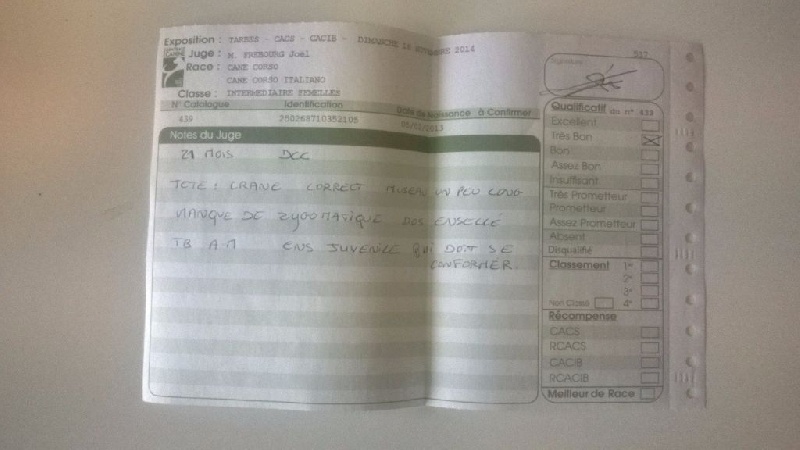 Exposition : TARBES - CACS - CACIB - DIMANCHE 16 NOVEMBRE 2014
Juge : M. FREBOURG Joël
Race : CANE CORSO
CANE CORSO ITALIANO
Classe : INTERMEDIAIRE FEMELLES
N° Catalogue Identification Date de Naissance à Confirmer
439 250268710352105
Notes du Juge
21 MOIS DCC
TETE : CRANE CORRECT MUSEAU UN PEU LONG
MANQUE DE ZYGOMATIQUE DOS ENSELLÉ
TB A.M ENS JUVENILE QUI DOIT SE
CONFORMER
517
Signature
Qualificatif du n° 439
Excellent
Très Bon
Bon
Assez Bon
Insuffisant
Très Prometteur
Prometteur
Assez Prometteur
Absent
Disqualifié
Classement 1er
2e
3e
Non Classé 4e
Récompense
CACS
RCACS
CACIB
RCACIB
Meilleur de Race